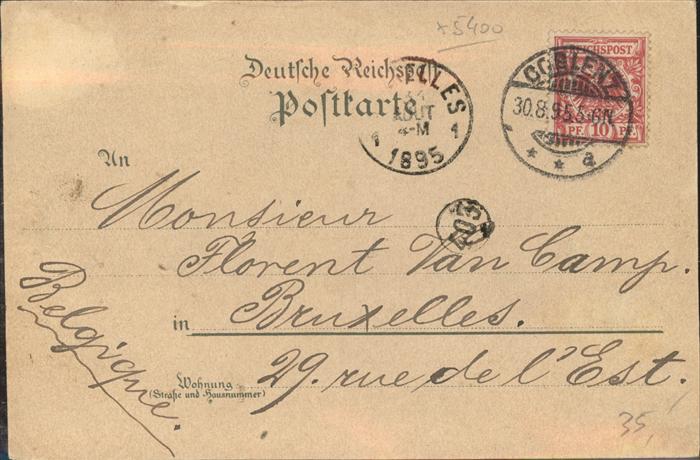 x5400
REICHSPOST
COBLENZ
30.8.95.5-6N.
PF. 10 PF.
* * a
ELLES
AOUT
4-M
1 1
1895
Deutsche Reichspost
Postkarte
An
Monsieur
405
Florent Van Camp.
in Bruxelles.
Wohnung
(Straße und Hausnummer)
29. rue de l'Est.
Belgique.
35,